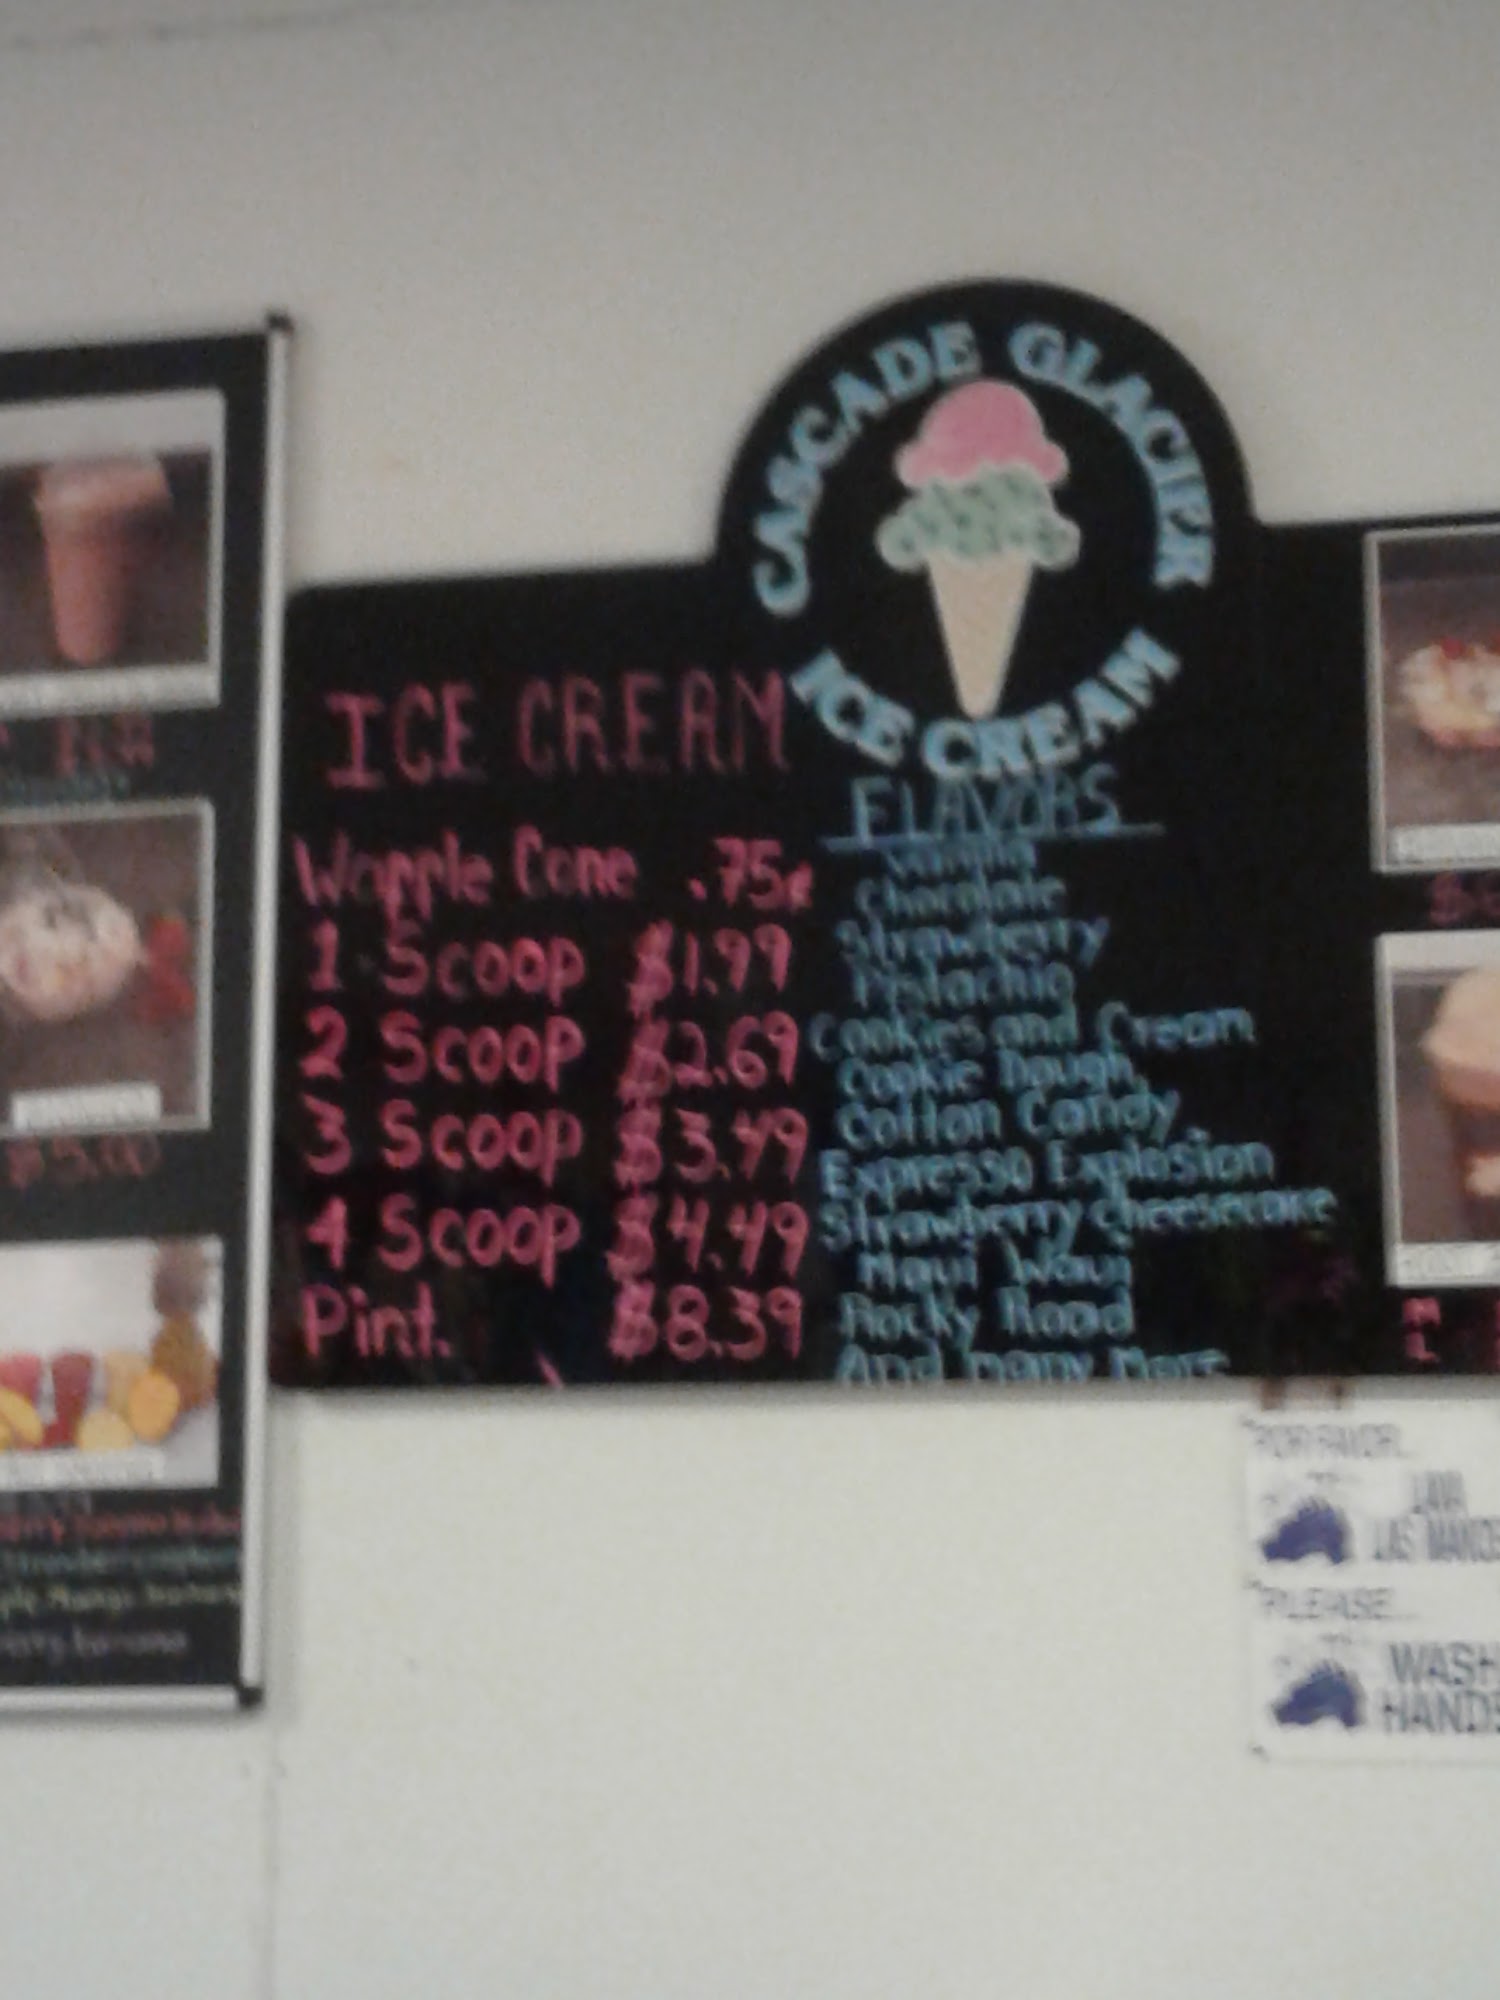 CASCADE GLACIER
ICE CREAM
ICE CREAM
Waffle Cone .75¢
1 Scoop $1.99
2 Scoop $2.69
3 Scoop $3.49
4 Scoop $4.49
Pint. $8.39
FLAVORS
Vanilla
Chocolate
Strawberry
Pistachio
Cookies and Cream
Cookie Dough
Cotton Candy
Expresso Explosion
Strawberry Cheesecake
Maui Waui
Rocky Road
And Many More
$5.00
POR FAVOR...
LAVA
LAS MANOS
PLEASE...
WASH
HANDS